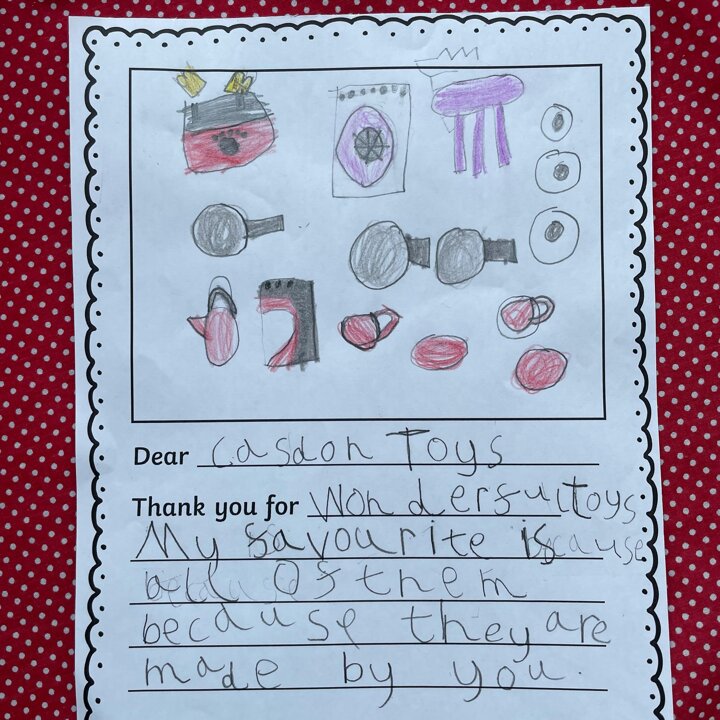 Dear Casdon Toys
Thank you for Wonderful toys
My favourite is because
all of them
because they are
made by you.